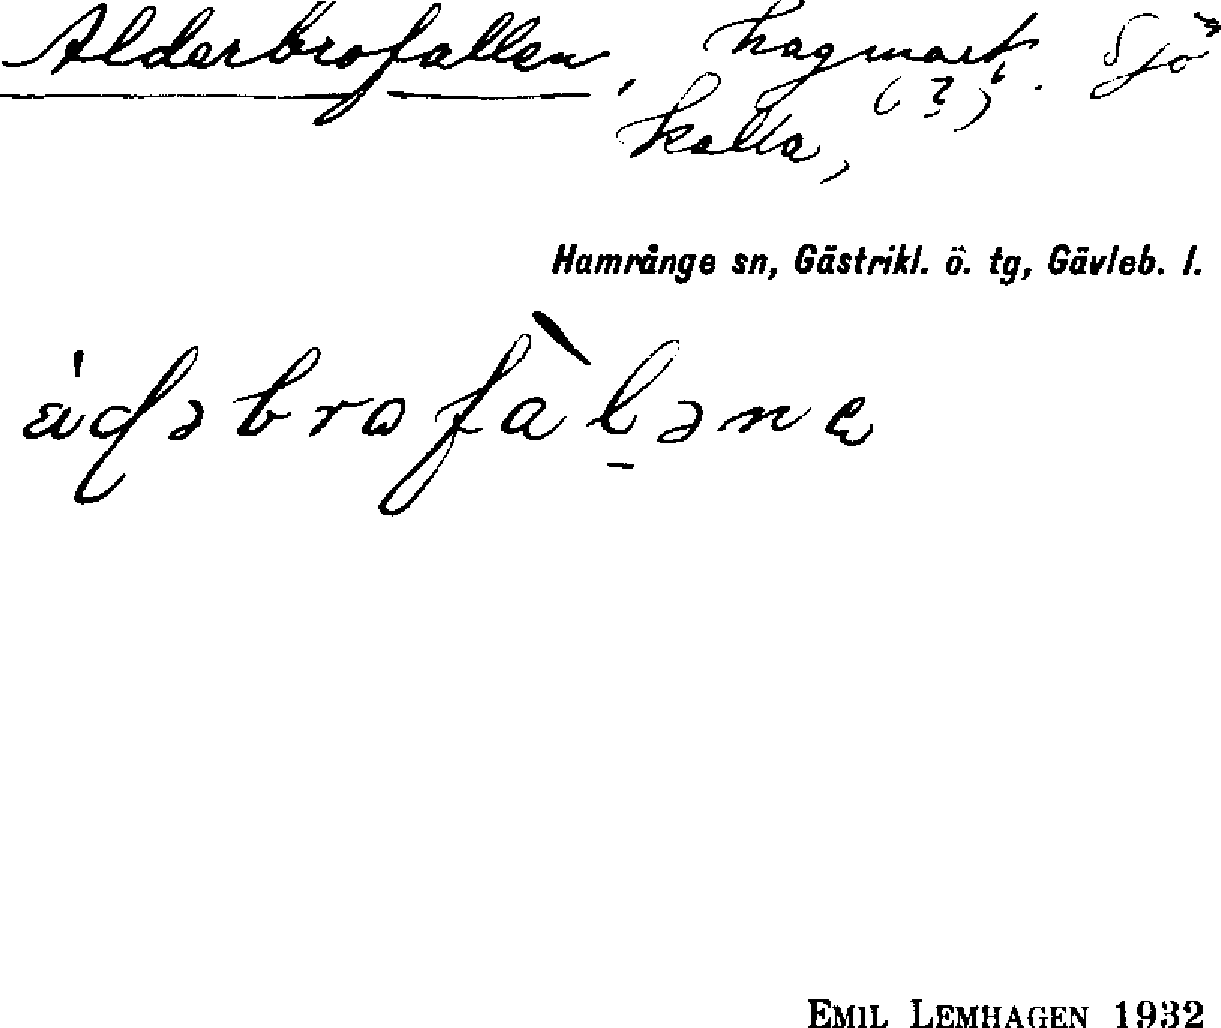 Alderbrofallen, hagmark (?) i Sjö
kalla,
Hamrånge sn, Gästrikl. ö. tg, Gävleb. l.
EMIL LEMHAGEN 1932